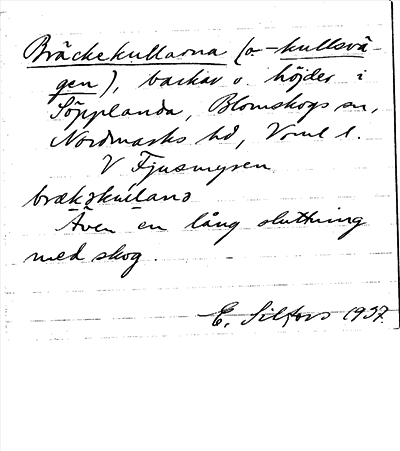 Bräckekullarna (o. -kullsvä-
gen), backar o. höjder i
Söpplanda, Blomskogs sn,
Nordmarks hd, Vrml l.
V Fjusmyren
Även en lång sluttning
med skog.
E. Silfors 1937.